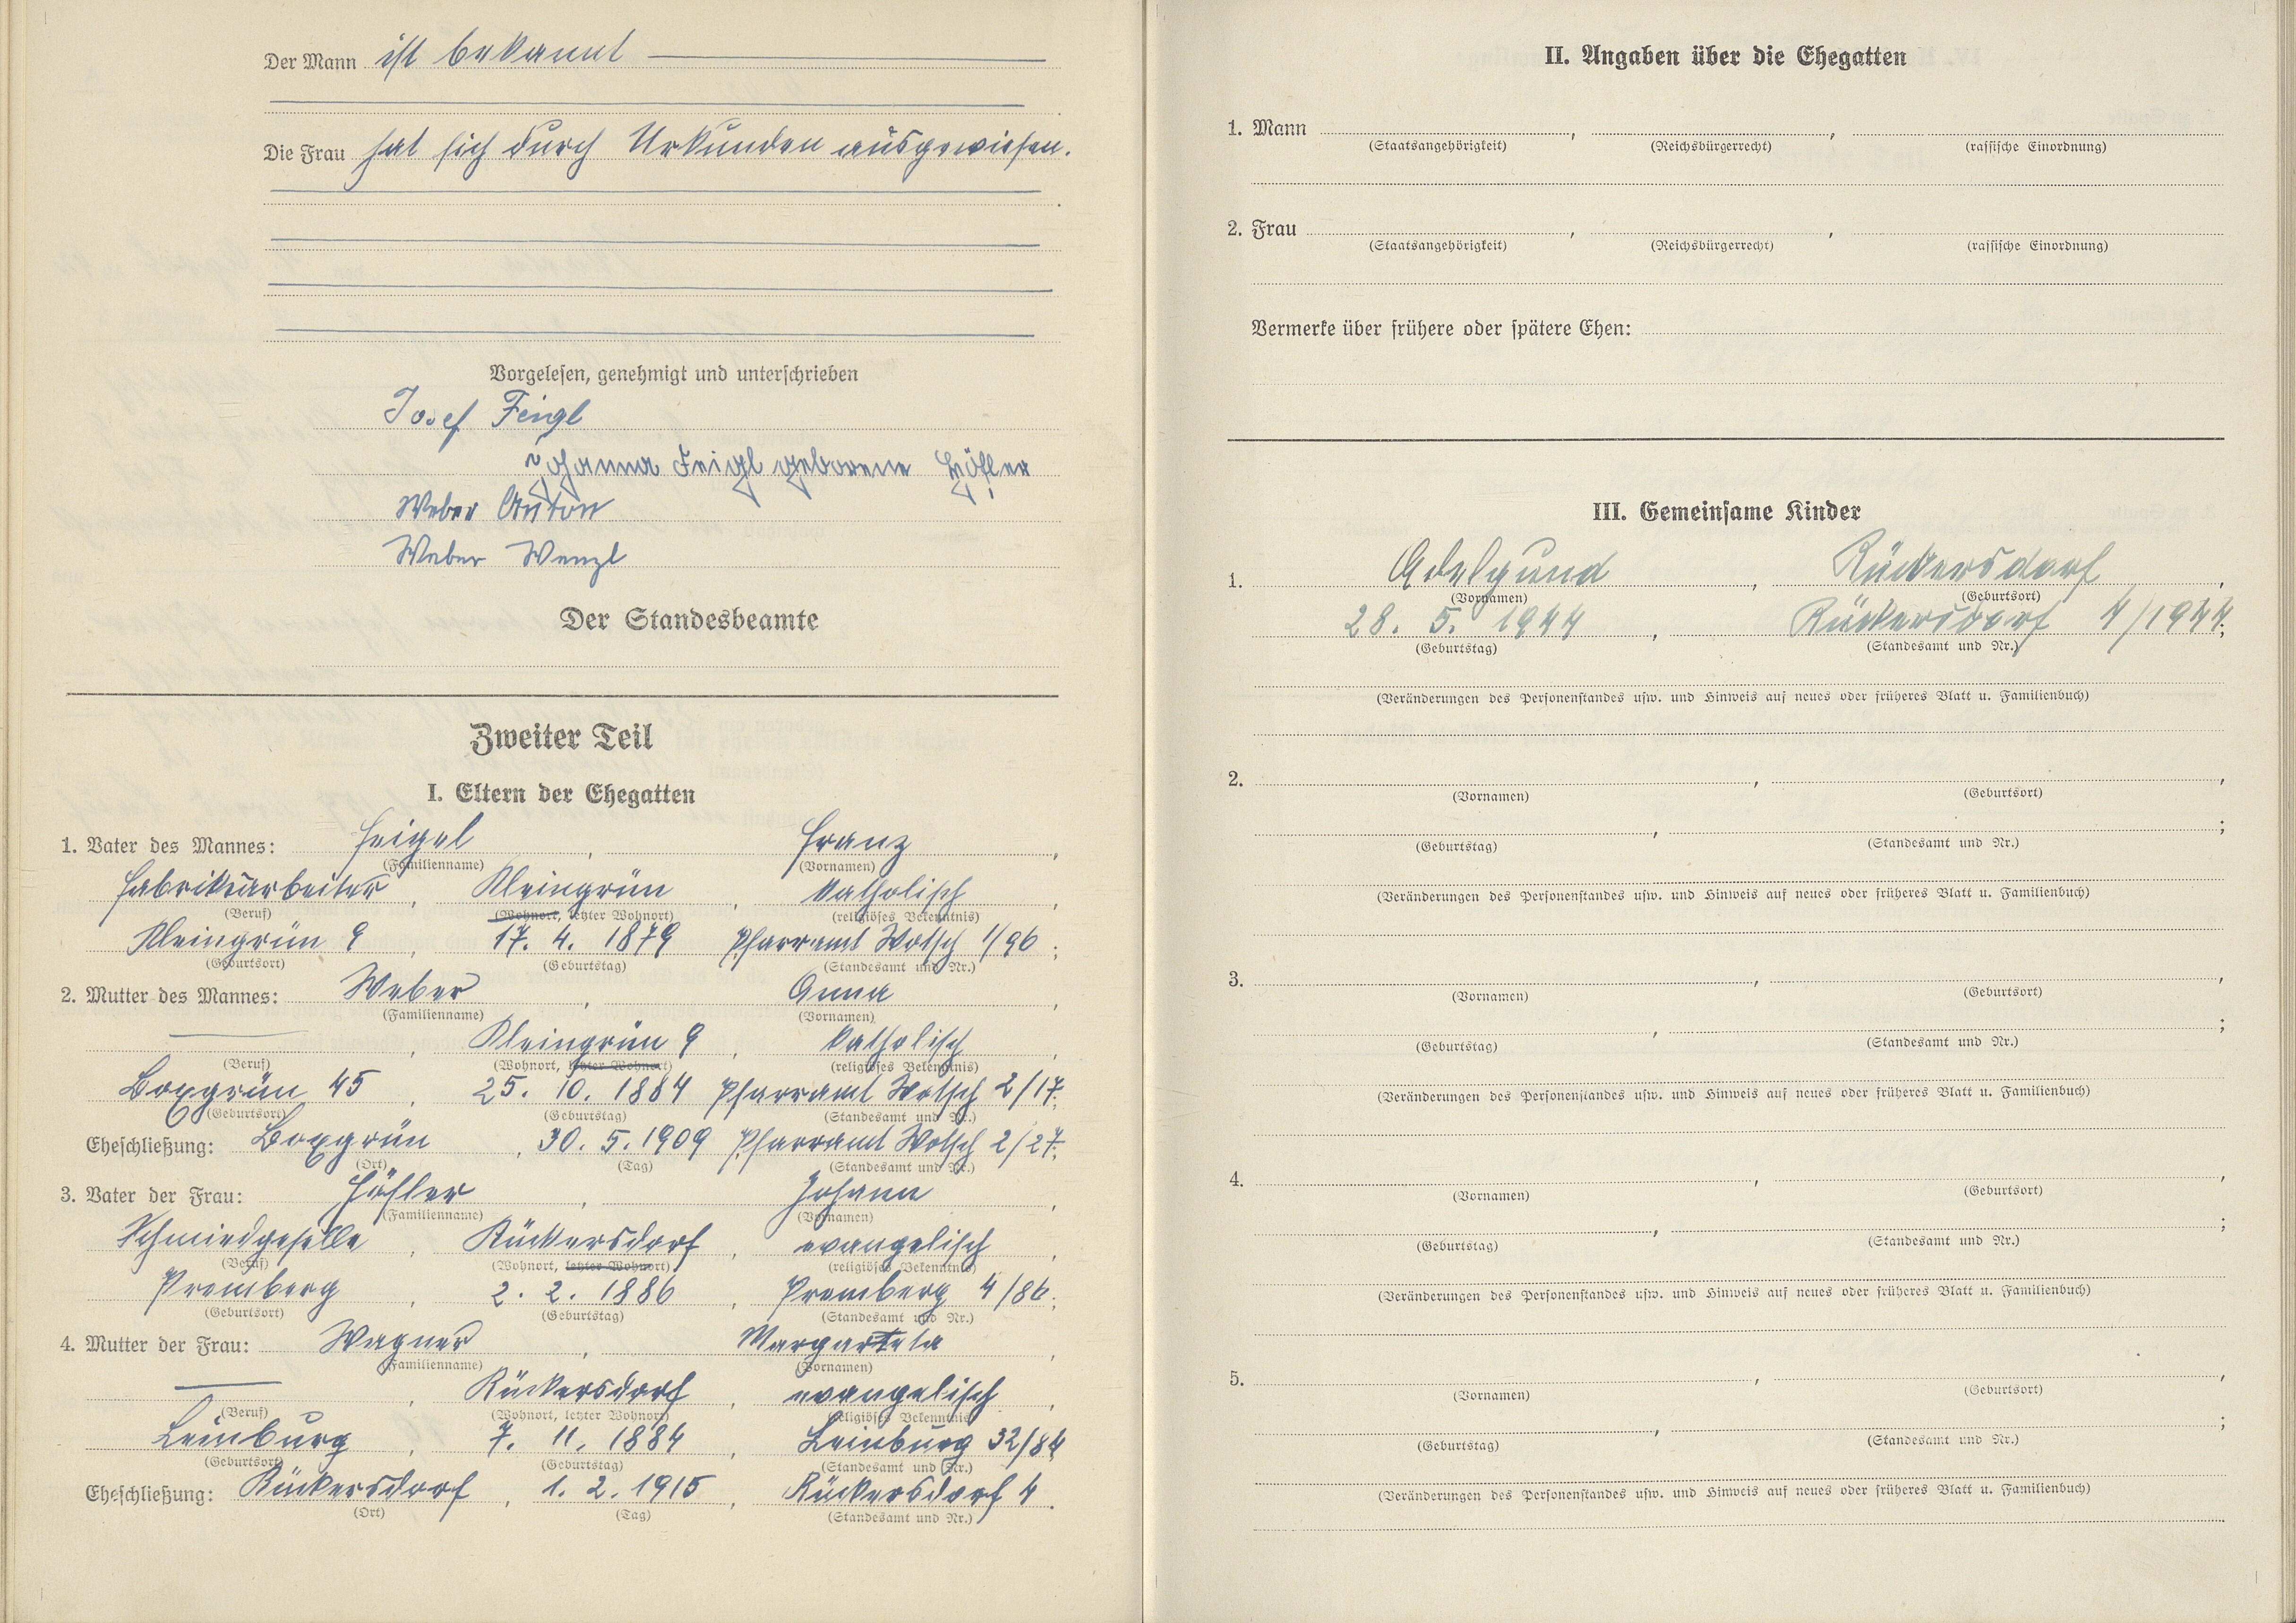 Der Mann ist bekannt
Die Frau hat sich durch Urkunden ausgewiesen.
Vorgelesen, genehmigt und unterschrieben
Josef Feigl
Johanna Feigl geborene Höfler
Weber Anton
Weber Wenzl
Der Standesbeamte
Zweiter Teil
I. Eltern der Ehegatten
1. Vater des Mannes: Feigel, Franz,
(Familienname) (Vornamen)
Fabriksarbeiter, Kleingrün, katholisch,
(Beruf) (Wohnort, letzter Wohnort) (religiöses Bekenntnis)
Kleingrün 9, 17. 4. 1879 Pfarramt Wotsch 1/96;
(Geburtsort) (Geburtstag) (Standesamt und Nr.)
2. Mutter des Mannes: Weber, Anna,
(Familienname) (Vornamen)
Kleingrün 9, katholisch,
(Beruf) (Wohnort, letzter Wohnort) (religiöses Bekenntnis)
Boxgrün 45, 25. 10. 1884 Pfarramt Wotsch 2/17;
(Geburtsort) (Geburtstag) (Standesamt und Nr.)
Eheschließung: Boxgrün, 30. 5. 1909 Pfarramt Wotsch 2/27;
(Ort) (Tag) (Standesamt und Nr.)
3. Vater der Frau: Höfler, Johann,
(Familienname) (Vornamen)
Schmiedgeselle, Rückersdorf, evangelisch,
(Beruf) (Wohnort, letzter Wohnort) (religiöses Bekenntnis)
Premberg, 2. 2. 1886, Premberg 4/86;
(Geburtsort) (Geburtstag) (Standesamt und Nr.)
4. Mutter der Frau: Wagner, Margarteta,
(Familienname) (Vornamen)
Rückersdorf, evangelisch,
(Beruf) (Wohnort, letzter Wohnort) (religiöses Bekenntnis)
Leinburg, 7. 11. 1884, Leinburg 32/84
(Geburtsort) (Geburtstag) (Standesamt und Nr.)
Eheschließung: Rückersdorf, 1. 2. 1915, Rückersdorf 4.
(Ort) (Tag) (Standesamt und Nr.)
II. Angaben über die Ehegatten
1. Mann , ,
(Staatsangehörigkeit) (Reichsbürgerrecht) (rassische Einordnung)
2. Frau , ,
(Staatsangehörigkeit) (Reichsbürgerrecht) (rassische Einordnung)
Vermerke über frühere oder spätere Ehen:
III. Gemeinsame Kinder
1. Adelgund, Rückersdorf,
(Vornamen) (Geburtsort)
28. 5. 1944, Rückersdorf 4/1944;
(Geburtstag) (Standesamt und Nr.)
(Veränderungen des Personenstandes usw. und Hinweis auf neues oder früheres Blatt u. Familienbuch)
2. , ,
(Vornamen) (Geburtsort)
, ;
(Geburtstag) (Standesamt und Nr.)
(Veränderungen des Personenstandes usw. und Hinweis auf neues oder früheres Blatt u. Familienbuch)
3. , ,
(Vornamen) (Geburtsort)
, ;
(Geburtstag) (Standesamt und Nr.)
(Veränderungen des Personenstandes usw. und Hinweis auf neues oder früheres Blatt u. Familienbuch)
4. , ,
(Vornamen) (Geburtsort)
, ;
(Geburtstag) (Standesamt und Nr.)
(Veränderungen des Personenstandes usw. und Hinweis auf neues oder früheres Blatt u. Familienbuch)
5. , ,
(Vornamen) (Geburtsort)
, ;
(Geburtstag) (Standesamt und Nr.)
(Veränderungen des Personenstandes usw. und Hinweis auf neues oder früheres Blatt u. Familienbuch)